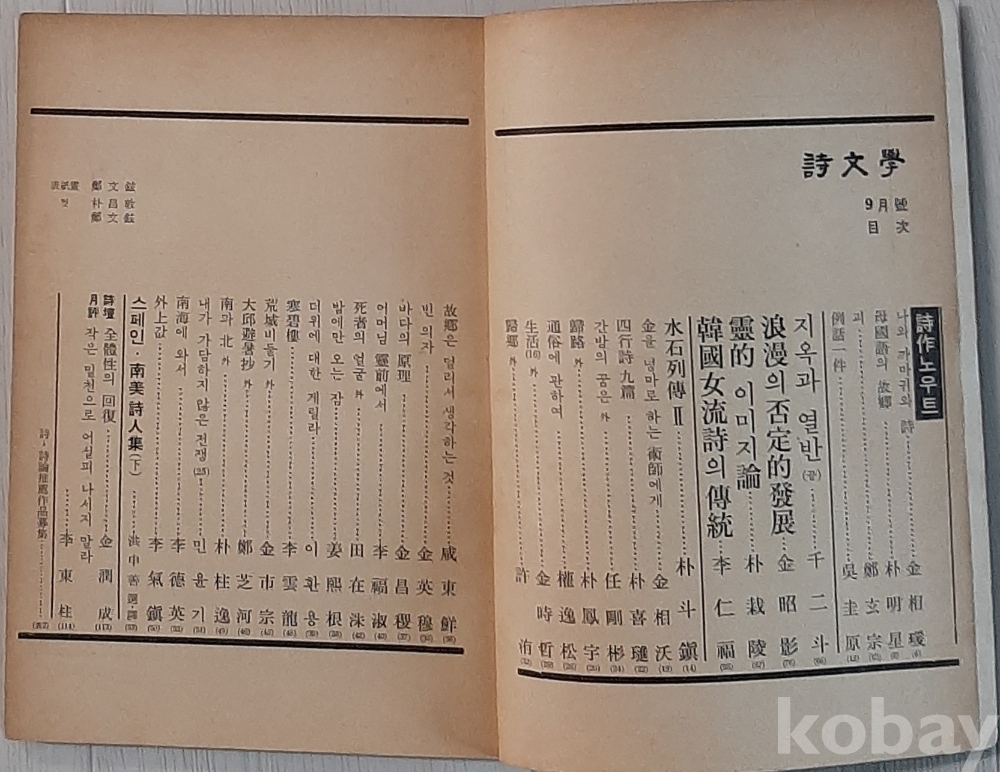 詩文學
9月號
目次
詩作노우트
나와 까마귀와 詩 金相
母國語의 故鄕 朴明星
피 鄭玄宗
例話一件 吳圭原
지옥과 열반(끝) 千二斗
浪漫의 否定的 發展 金昭影
靈的 이미지論 朴栽陵
韓國女流詩의 傳統 李仁福
水石列傳 Ⅱ 朴斗鎭 (14)
金을 넝마로 하는 術師에게 金相沃 (19)
四行詩九篇 朴喜璡 (22)
간밤의 꿈은 外 任剛彬 (24)
歸路 外 朴鳳宇 (26)
通俗에 관하여 權逸松
生活(16) 外 金時哲
歸鄕 外 許洧 (32)
故鄕은 멀리서 생각하는 것 咸東鮮
빈 의자 金英穆
바다의 原理 金昌稷 (37)
어머님 靈前에서 李福淑
死者의 얼굴 外 田在洙
밤에만 오는 잠 姜熙根
더위에 대한 게릴라 이환용
寒碧樓 李雲龍
荒城비둘기 外 金市宗
大邱避暑抄 外 鄭芝河
南과 北 外 朴柱逸
내가 가담하지 않은 전쟁(25) 민윤기
南海에 와서 李德英
外上값 李氣鎭
스페인·南美 詩人集(下) 洪申善 選·譯
詩壇月評
全體性의 回復 金潤成
작은 밑천으로 어설피 나서지 말라 李東柱 (114)
詩·詩論推薦作品募集
表紙畫 鄭文鉉
컷 朴昌敦
鄭文鉉
kobay